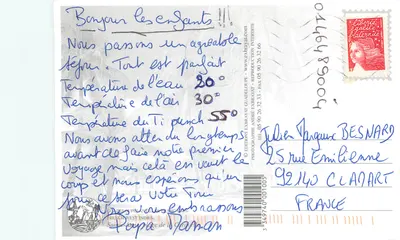 Bonjour les enfants
Nous passons un agréable
séjour. Tout est parfait
Température de l'eau 20°
Température de l'air 30°
Température du Ti punch 55°
Nous avons attendu longtemps
avant de faire notre premier
Voyage mais celà en vaut le
coup et nous espérons qu'un
jour ce sera Votre Tour
Nous Vous embrassons
Papa Maman
Julien Margaux BESNARD
25 rue Emilienne
92140 CLAMART
FRANCE